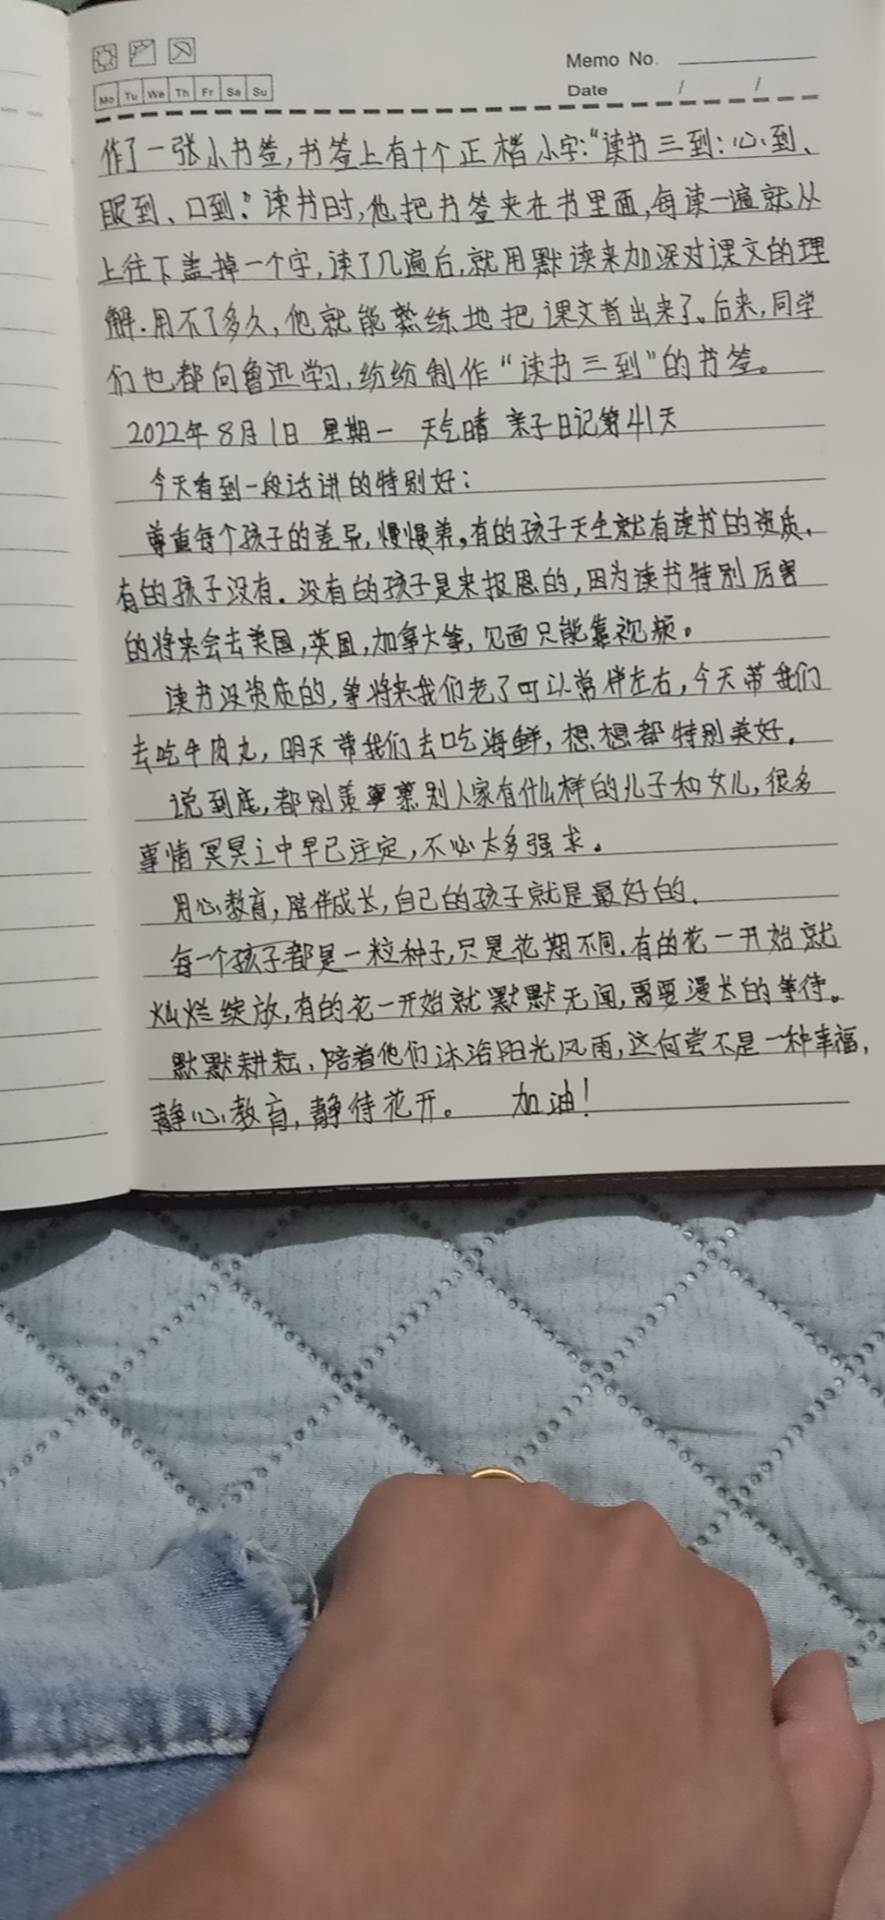 Memo No.
Mo Tu We Th Fr Sa Su
Date / /
作了一张小书签,书签上有十个正楷小字:“读书三到:心到、
眼到、口到。”读书时,他把书签夹在书里面,每读一遍就从
上往下盖掉一个字,读了几遍后,就用默读来加深对课文的理
解.用不了多久,他就能熟练地把课文背出来了。后来,同学
们也都向鲁迅学习,纷纷制作“读书三到”的书签。
2022年8月1日 星期一 天气晴 亲子日记第41天
今天看到一段话讲的特别好:
尊重每个孩子的差异,慢慢养。有的孩子天生就有读书的资质,
有的孩子没有.没有的孩子是来报恩的,因为读书特别厉害
的将来会去美国,英国,加拿大等,见面只能靠视频。
读书没资质的,等将来我们老了可以常伴左右,今天带我们
去吃牛肉丸,明天带我们去吃海鲜,想想都特别美好.
说到底,都别羡慕别人家有什么样的儿子和女儿,很多
事情冥冥之中早已注定,不必太多强求。
用心教育,陪伴成长,自己的孩子就是最好的.
每一个孩子都是一粒种子,只是花期不同.有的花一开始就
灿烂绽放,有的花一开始就默默无闻,需要漫长的等待。
默默耕耘,陪着他们沐浴阳光风雨,这何尝不是一种幸福,
静心教育,静待花开。 加油!